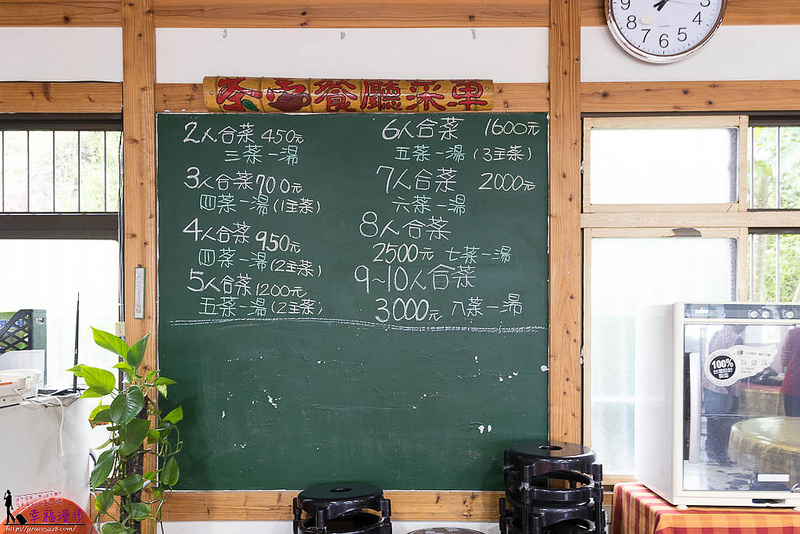 茶山餐廳菜單
2人合菜 450元
三菜一湯
3人合菜700元
四菜一湯(1主菜)
4人合菜 950元
四菜一湯(2主菜)
5人合菜1200元
五菜一湯(2主菜)
6人合菜 1600元
五菜一湯(3主菜)
7人合菜 2000元
六菜一湯
8人合菜
2500元 七菜一湯
9~10人合菜
3000元 八菜一湯
9 8 7 6 5 4
100%
幸福漫步